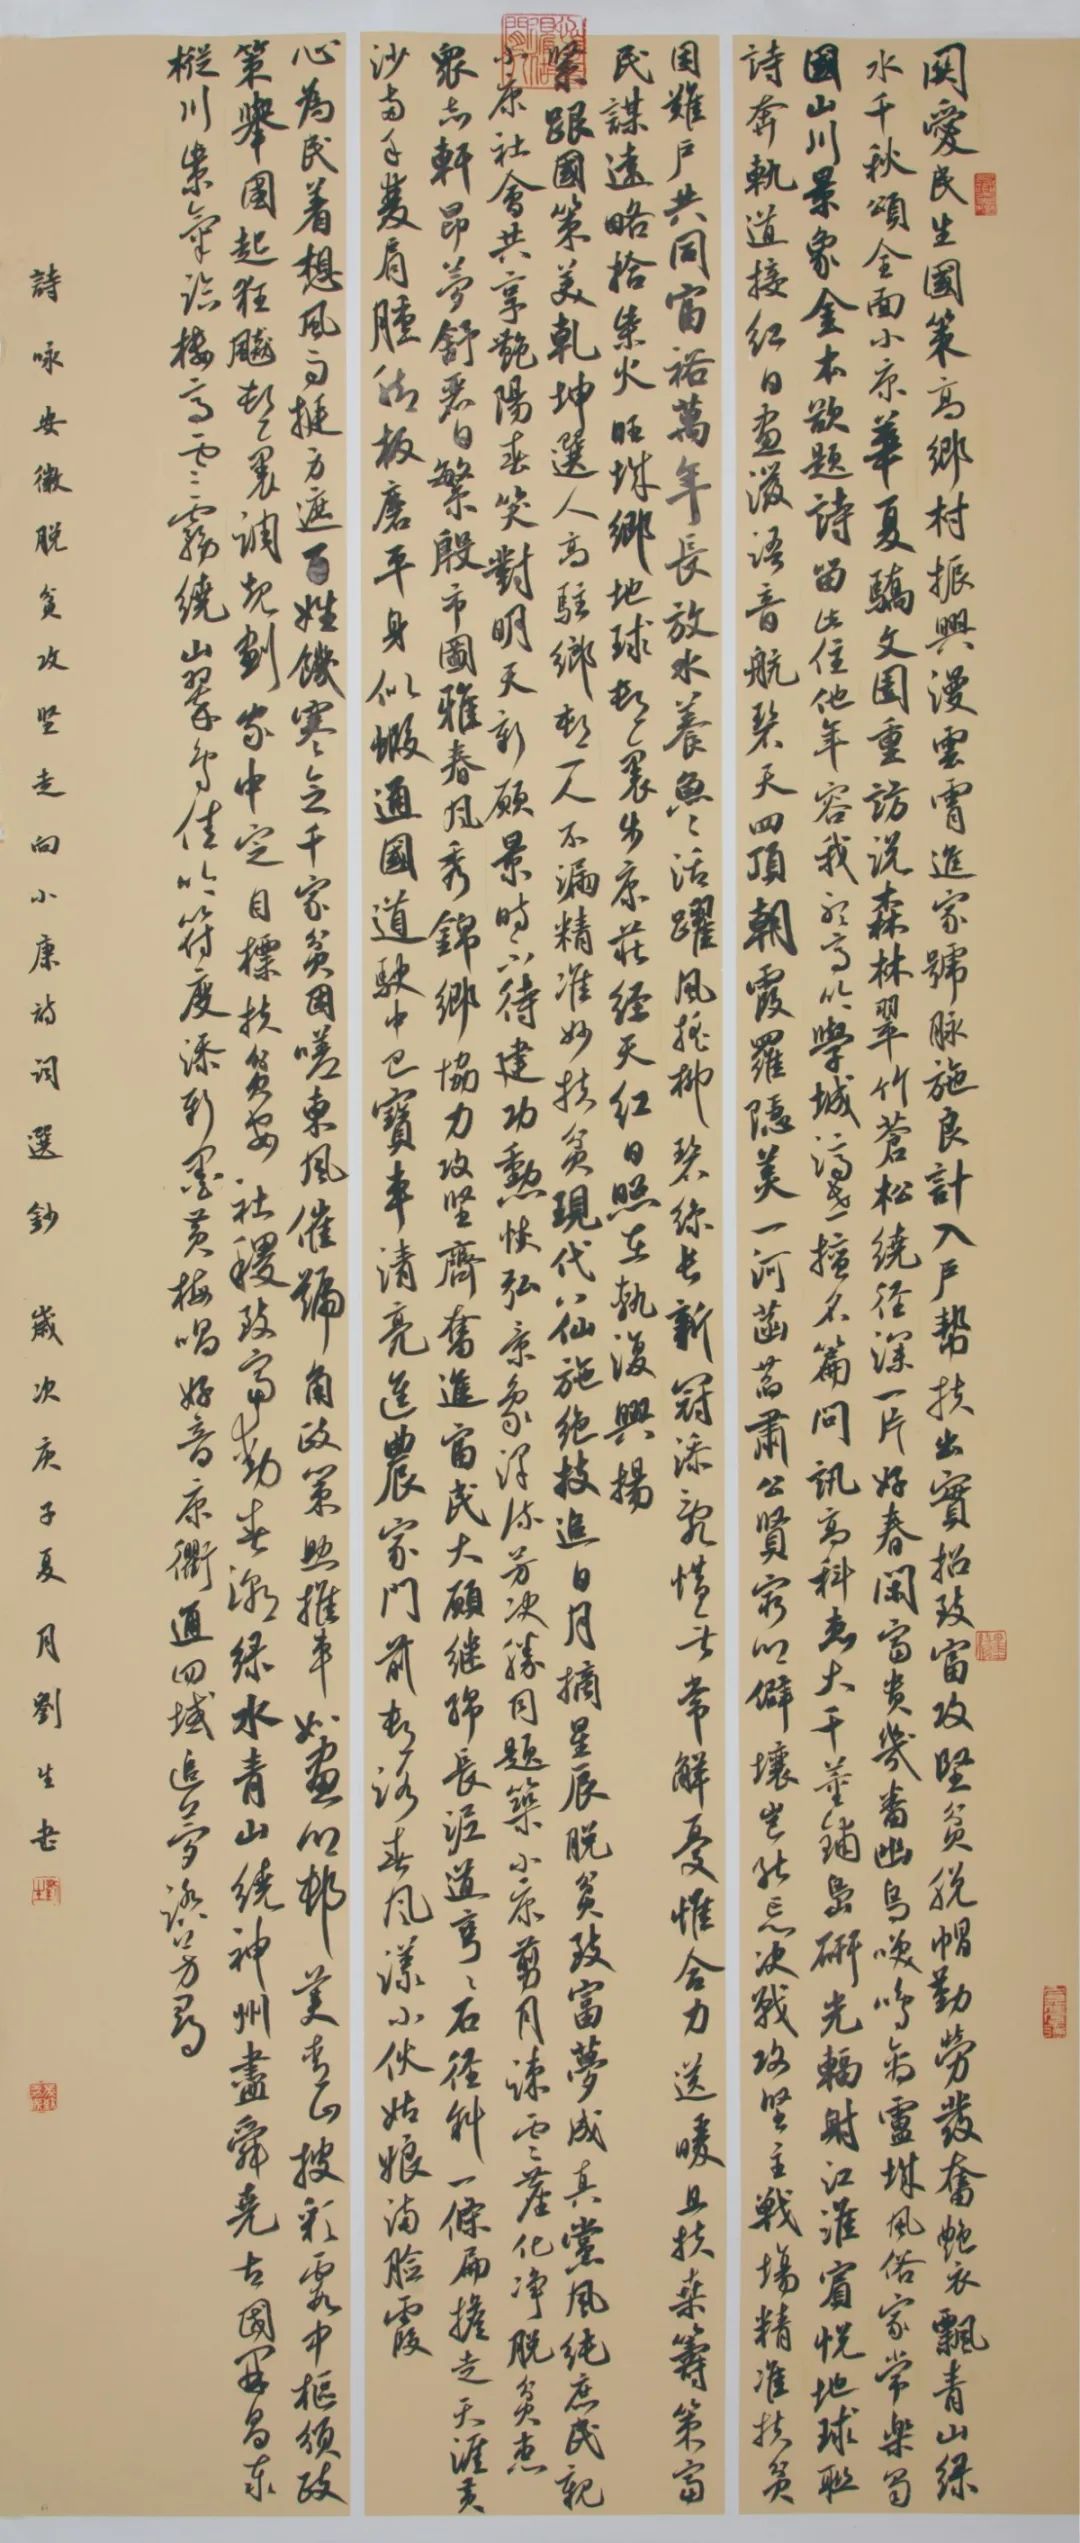 関愛民生國策高鄉村振興漫雲霄進家號脉施良計入戶幫扶出實招致富攻堅貧脱帽勤勞發奮袍衣飄青山緑
水千秋頌全面小康華夏驕文園重訪説森林翠竹蒼松繞径深一片好春閑富貴幾番幽鳥喚鳴禽盧垛風俗家常樂蜀
國山川景象金本欲題詩留此住他年容我登高吟學城擅名篇問訊高科惠大千並鋪島研光輻射江淮賓悦地球聯
詩奔軌道接紅日畫漫語音航碧天四頂朝霞羅隱美一河菡萏肅公賢窮鄉僻壤豈能忘決戰攻堅主戰場精准扶貧
困難戶共同富裕萬年長放水養魚魚活躍風摇柳碧絲長新冠添亂慣無常解憂惟合力送暖且扶桑籌策富
民謀遠略拾柴火旺垛鄉地球村裏步康莊經天紅日照在執復興揚
緊跟國策美乾坤選人高駐鄉村一人不漏精准妙扶貧現代八仙施絶技追日月摘星辰脱貧致富夢成真黨風純庶民親
小康社會共享艷陽春笑對明天新願景時不待建功勲快弘景象泽流芳决勝同題築小康剪月裁雲塵化净脱貧惠
衆志軒昂夢舒老日繁殷市圖雅春風秀錦鄉協力攻堅齊奮進富民大願継綿長泥道彎彎石径斜一條扁擔走天涯黄
沙雨手裂肩腫脚板磨平身似蝦通國道駛中巴寶車清亮進農家門前村路春風漾小伙姑娘滿臉霞
心爲民着想風雨挺方遮百姓饑寒寒念千家貧困嗟東風催號角政策照推車如畫鄉村美青山披彩霞中樞頒政
策舉國起狂飈村裏調規劃家中定目標扶貧安社稷致富勤春潮緑水青山繞神州盡舜堯古國羅昌泰
樅川紫氣臨樓高雲霧繞山翠鳥佳吟符度添新墨黄梅唱好音康衢通四域追夢路芳尋
詩咏安徽脱貧攻坚走向小康詩詞選鈔 歲次庚子夏月劉生書